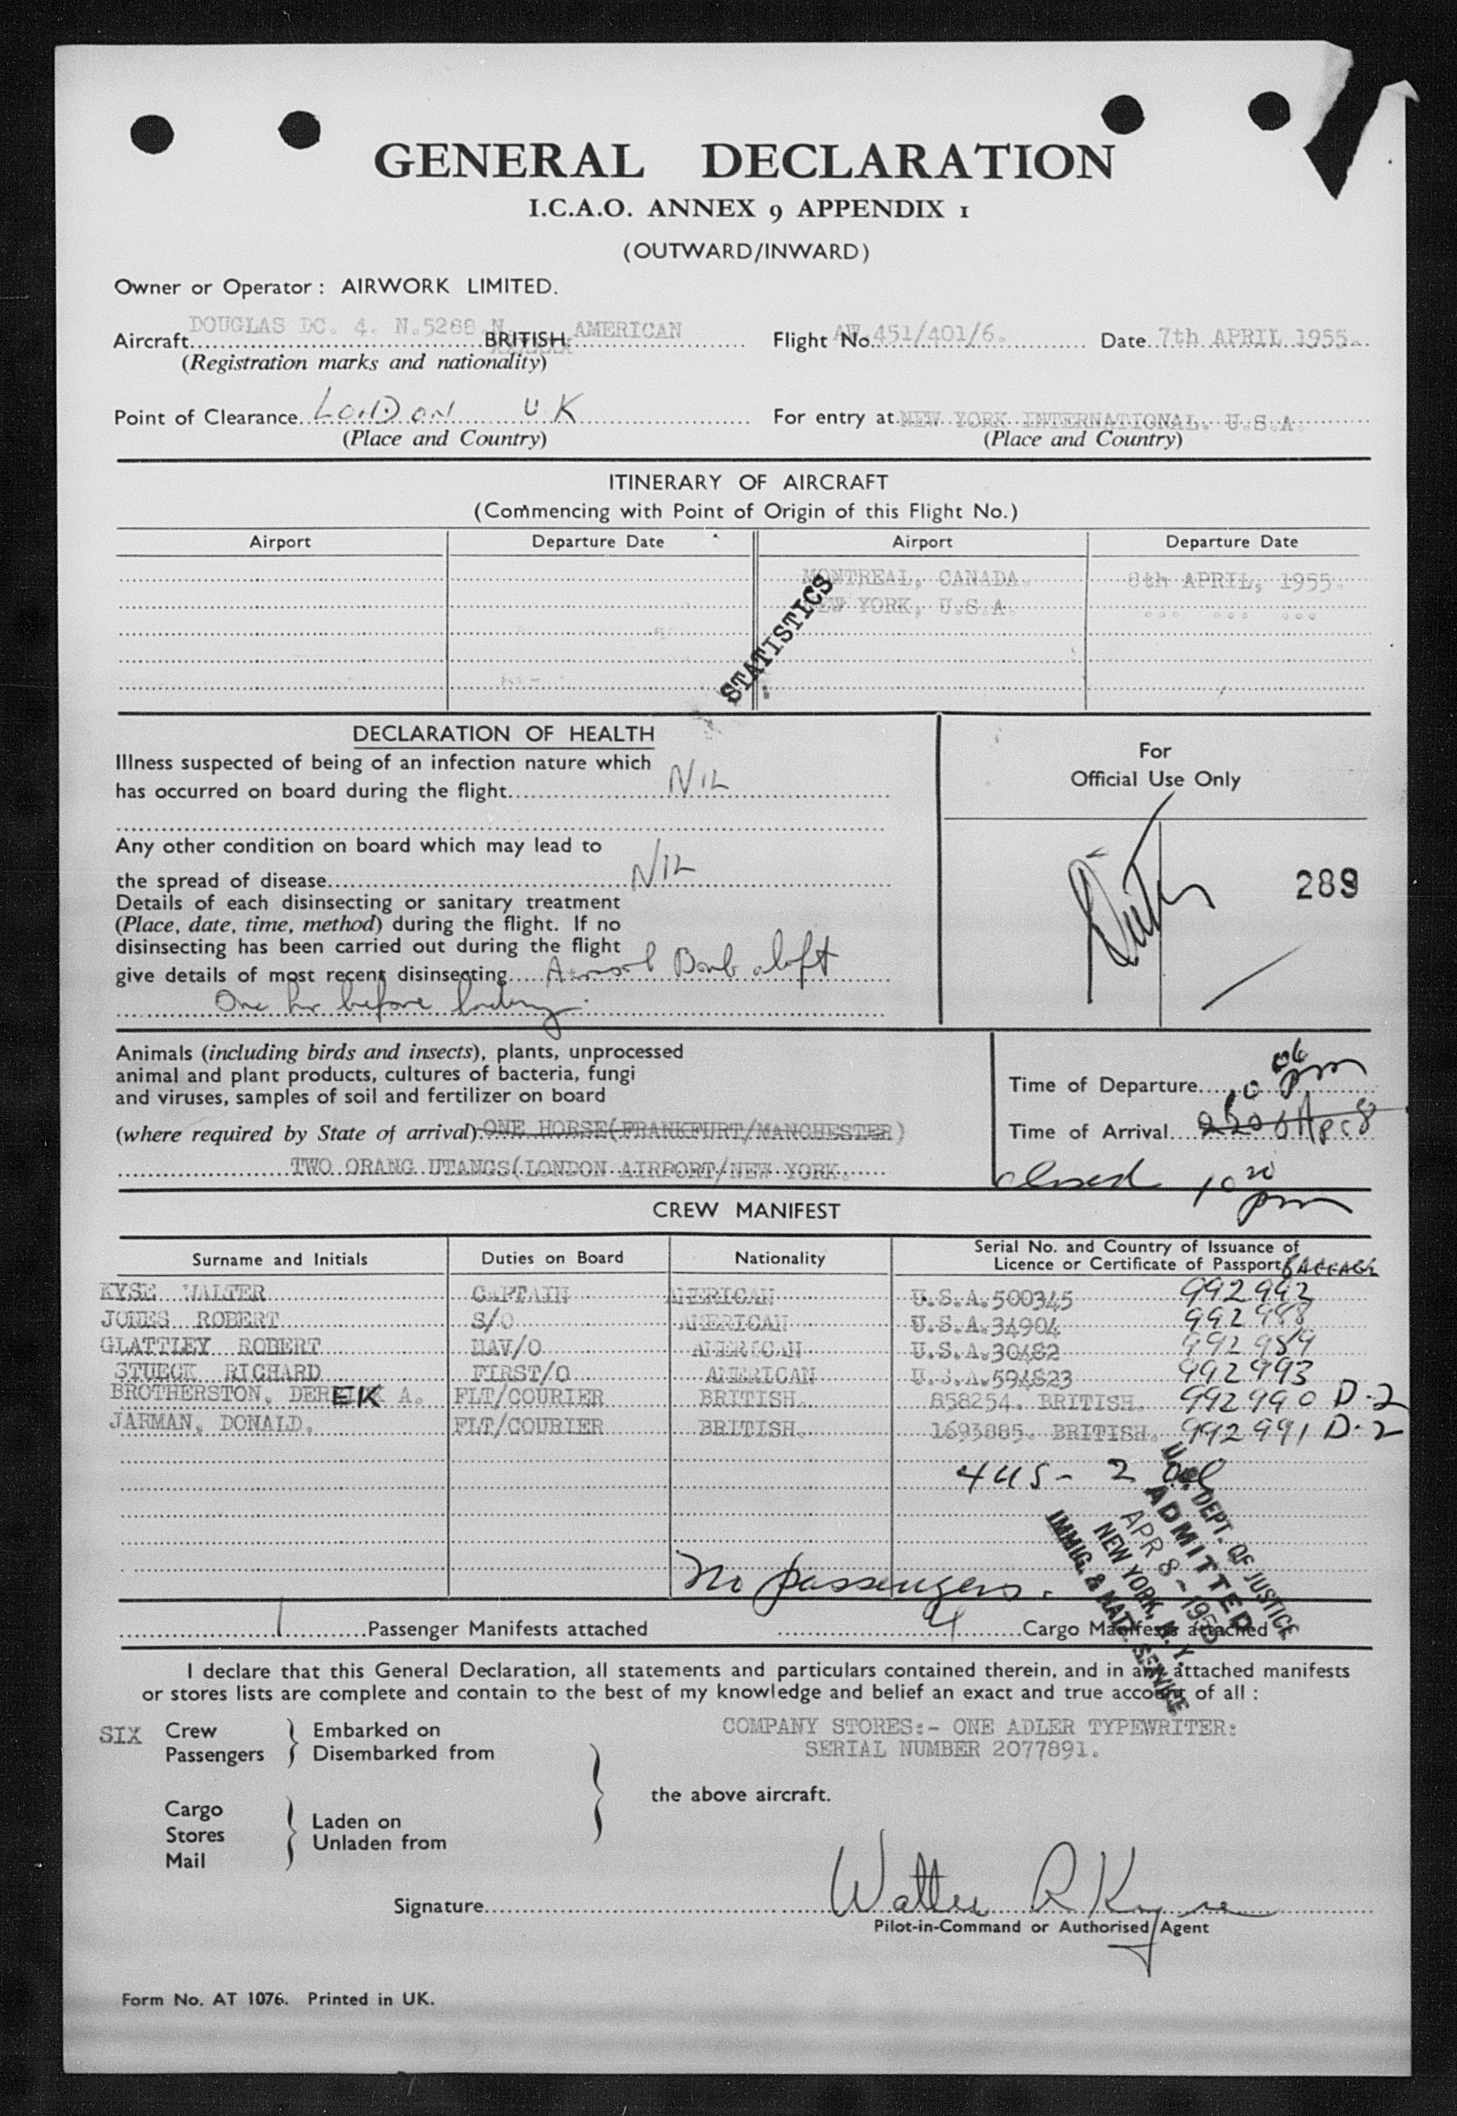 GENERAL DECLARATION
I.C.A.O. ANNEX 9 APPENDIX 1
(OUTWARD/INWARD)
Owner or Operator : AIRWORK LIMITED.
Aircraft DOUGLAS DC. 4. N.5288.N. BRITISH. AMERICAN Flight No. AW.451/401/6. Date 7th APRIL 1955.
(Registration marks and nationality)
Point of Clearance LONDON UK For entry at NEW YORK INTERNATIONAL. U.S.A.
(Place and Country) (Place and Country)
ITINERARY OF AIRCRAFT
(Commencing with Point of Origin of this Flight No.)
Airport Departure Date Airport Departure Date
MONTREAL, CANADA. 8th APRIL, 1955.
NEW YORK, U.S.A. ... ... ...
STATISTICS
DECLARATION OF HEALTH
Illness suspected of being of an infection nature which
has occurred on board during the flight NIL
Any other condition on board which may lead to
the spread of disease NIL
Details of each disinsecting or sanitary treatment
(Place, date, time, method) during the flight. If no
disinsecting has been carried out during the flight
give details of most recent disinsecting Aerosol Bomb aloft
One hr before landing.
For
Official Use Only
289
Animals (including birds and insects), plants, unprocessed
animal and plant products, cultures of bacteria, fungi
and viruses, samples of soil and fertilizer on board
(where required by State of arrival). ONE HORSE(FRANKFURT/MANCHESTER)
TWO ORANG UTANGS(LONDON AIRPORT/NEW YORK.
Time of Departure 10 06 pm
Time of Arrival 2206 Apr 8
closed 10 20 pm
CREW MANIFEST
Surname and Initials Duties on Board Nationality Serial No. and Country of Issuance of
Licence or Certificate of Passport BAGGAGE
KYSE WALTER CAPTAIN AMERICAN U.S.A. 500345 992992
JONES ROBERT S/O AMERICAN U.S.A. 34904 992988
GLATTLEY ROBERT NAV/O AMERICAN U.S.A. 30482 992989
STUECK RICHARD FIRST/O AMERICAN U.S.A. 594823 992993
BROTHERSTON, DEREK A. FLT/COURIER BRITISH. 858254. BRITISH. 992990 D-2
JARMAN, DONALD. FLT/COURIER BRITISH. 1693885. BRITISH. 992991 D-2
4 US - 2 al
U.S. DEPT. OF JUSTICE
ADMITTED
APR 8 - 1955
NEW YORK, N. Y.
IMMIG. & NAT. SERVICE
No passengers.
1 Passenger Manifests attached 4 Cargo Manifests attached
I declare that this General Declaration, all statements and particulars contained therein, and in any attached manifests
or stores lists are complete and contain to the best of my knowledge and belief an exact and true account of all :
SIX Crew Embarked on COMPANY STORES:- ONE ADLER TYPEWRITER:
Passengers Disembarked from SERIAL NUMBER 2077891.
the above aircraft.
Cargo Laden on
Stores Unladen from
Mail
Signature Walter R Kyse
Pilot-in-Command or Authorised Agent
Form No. AT 1076. Printed in UK.